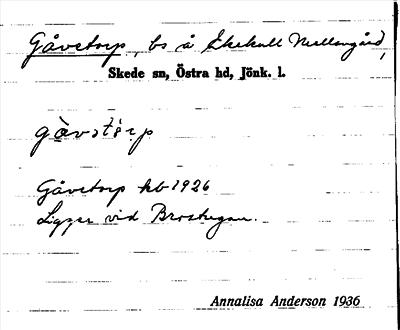 Gåvetorp, bs å Skekull Mellangård,
Skede sn, Östra hd, Jönk. l.
gåvetorp
Gåvetorp kb 1926
Ligger vid Brostugan.
Annalisa Anderson 1936